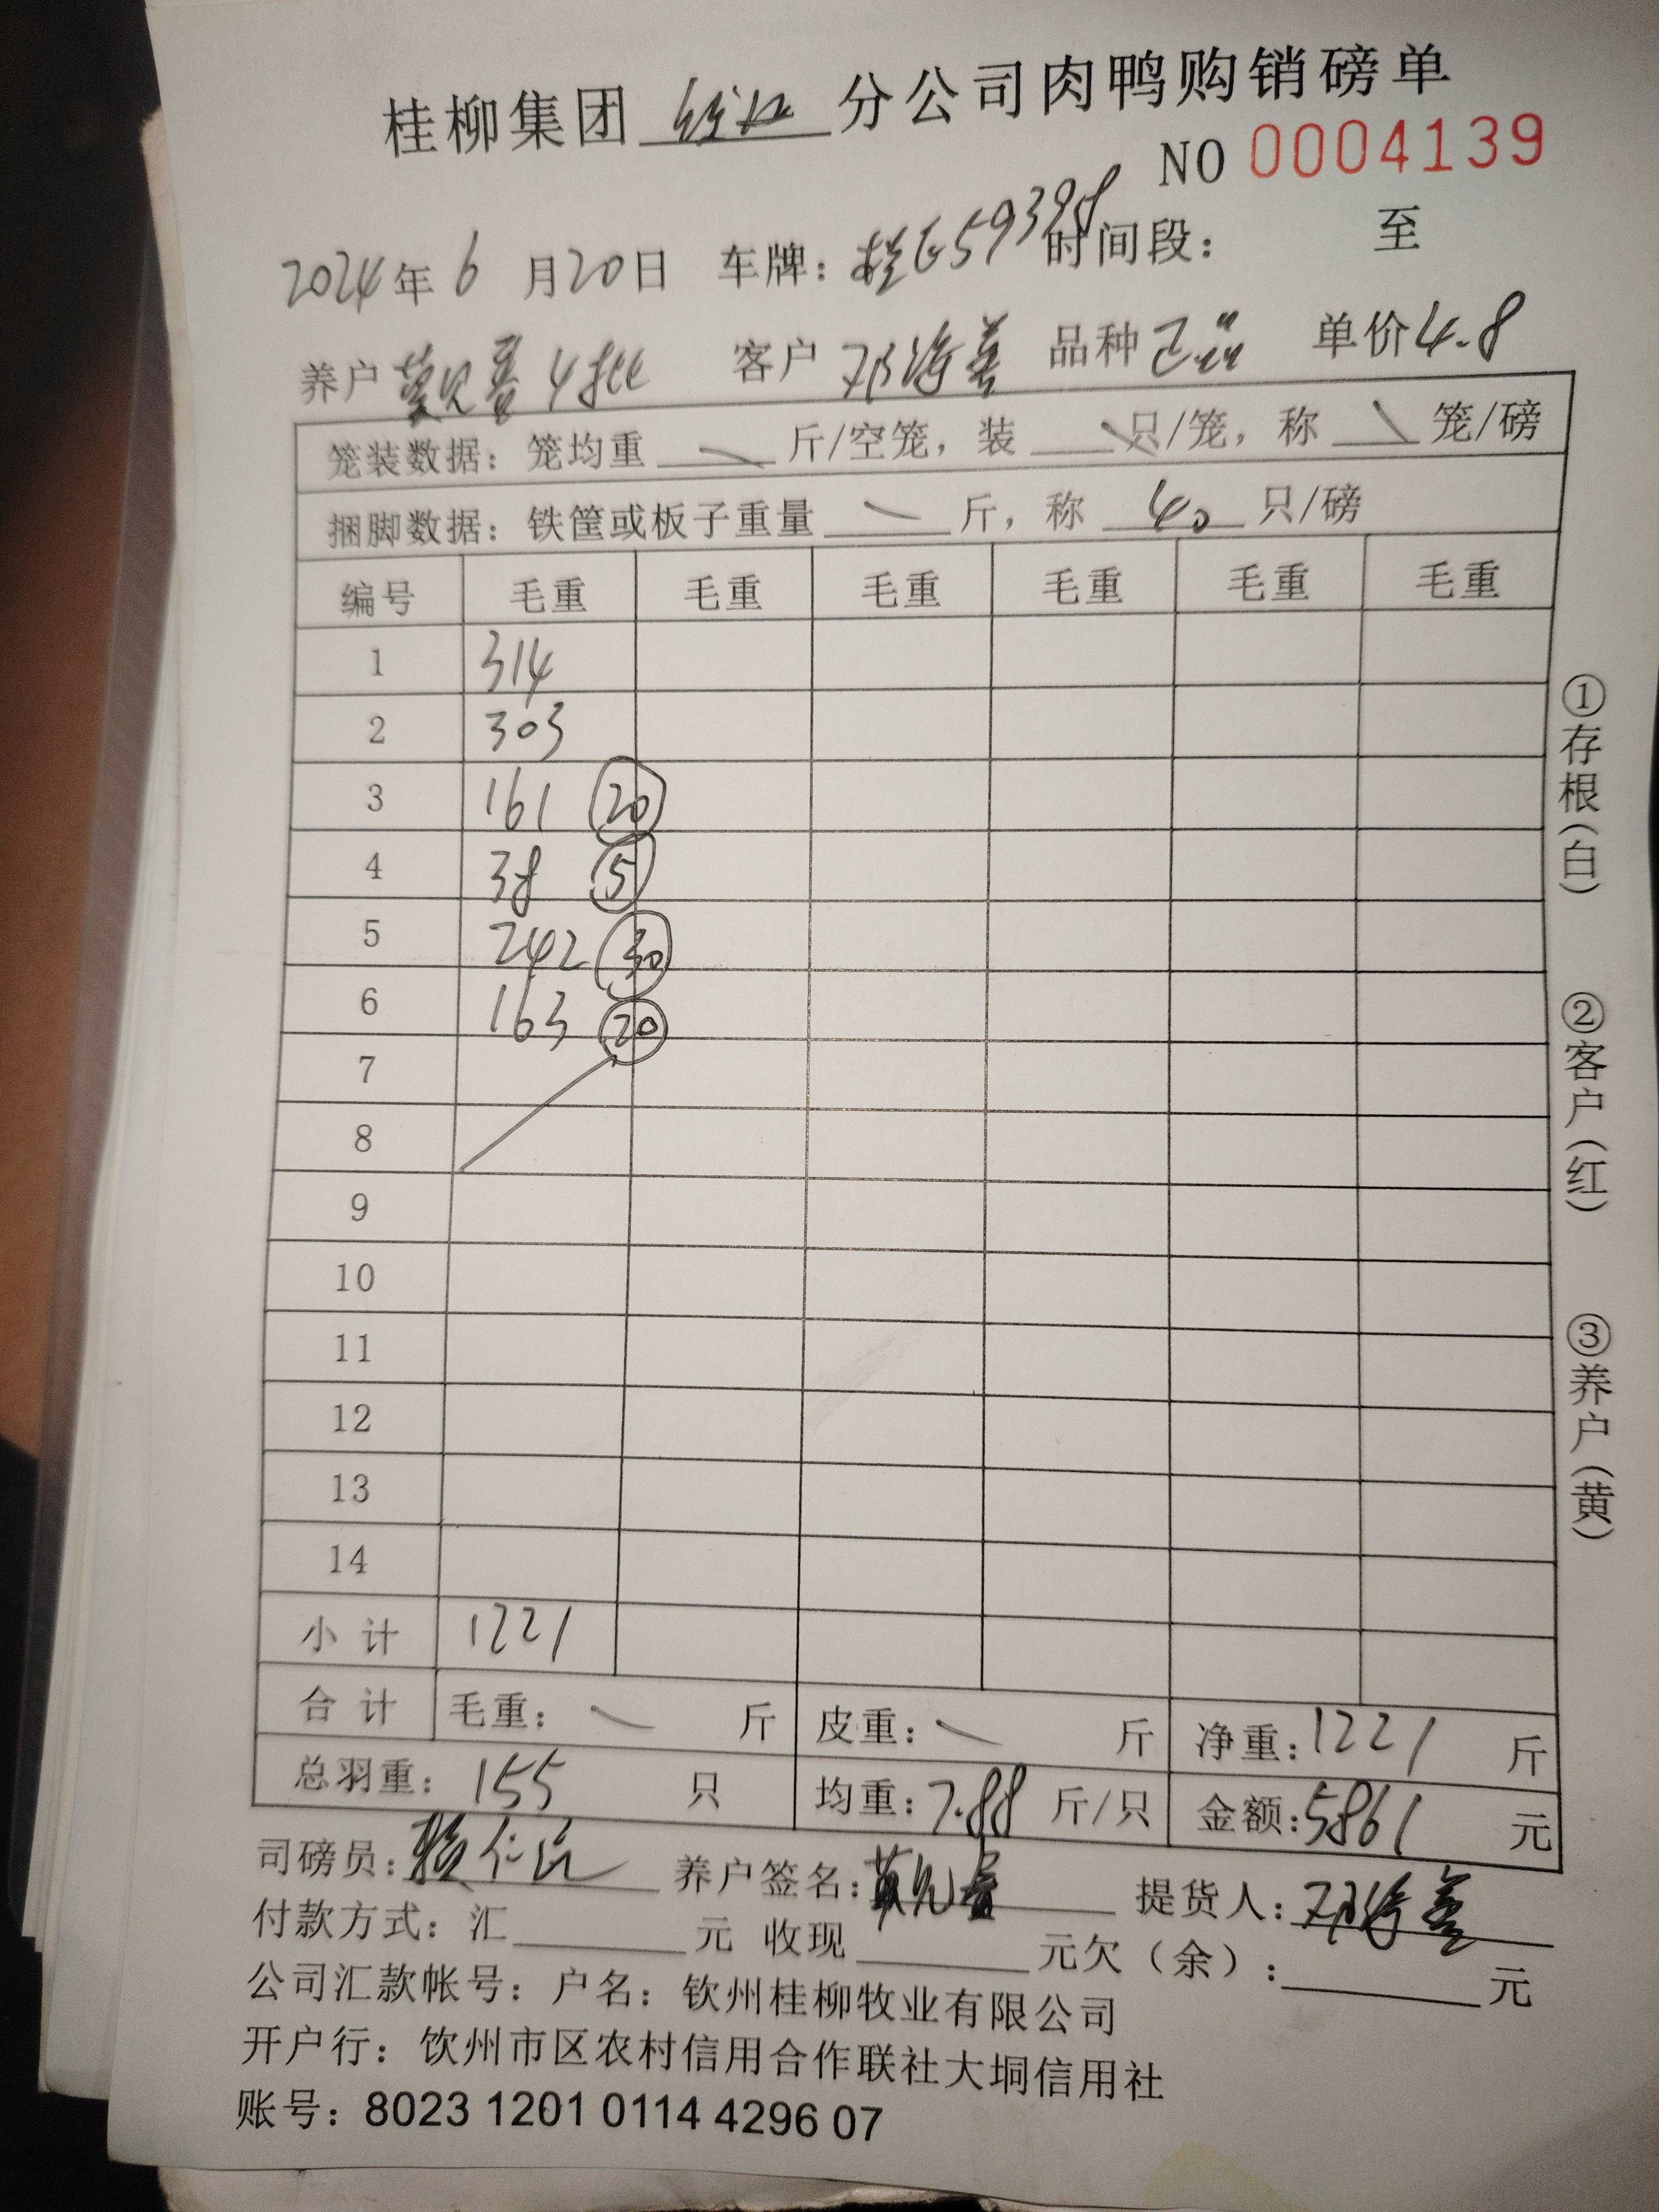 桂柳集团 分公司肉鸭购销磅单
NO 0004139
2024年6月20日 车牌：桂E59398 时间段： 至
养户 4批 客户 品种 单价4.8
笼装数据：笼均重 斤/空笼，装 只/笼，称 笼/磅
捆脚数据：铁筐或板子重量 斤，称 40 只/磅
编号 毛重 毛重 毛重 毛重 毛重 毛重
1 314
2 303
3 161 20
4 38 5
5 242 30
6 163 20
7
8
9
10
11
12
13
14
小计 1221
合计 毛重： 斤 皮重： 斤 净重：1221 斤
总羽重：155 只 均重：7.88 斤/只 金额：5861 元
司磅员： 养户签名： 提货人：
付款方式：汇 元 收现 元欠（余）： 元
公司汇款帐号：户名：钦州桂柳牧业有限公司
开户行：钦州市区农村信用合作联社大垌信用社
账号：8023 1201 0114 4296 07
①存根（白）
②客户（红）
③养户（黄）